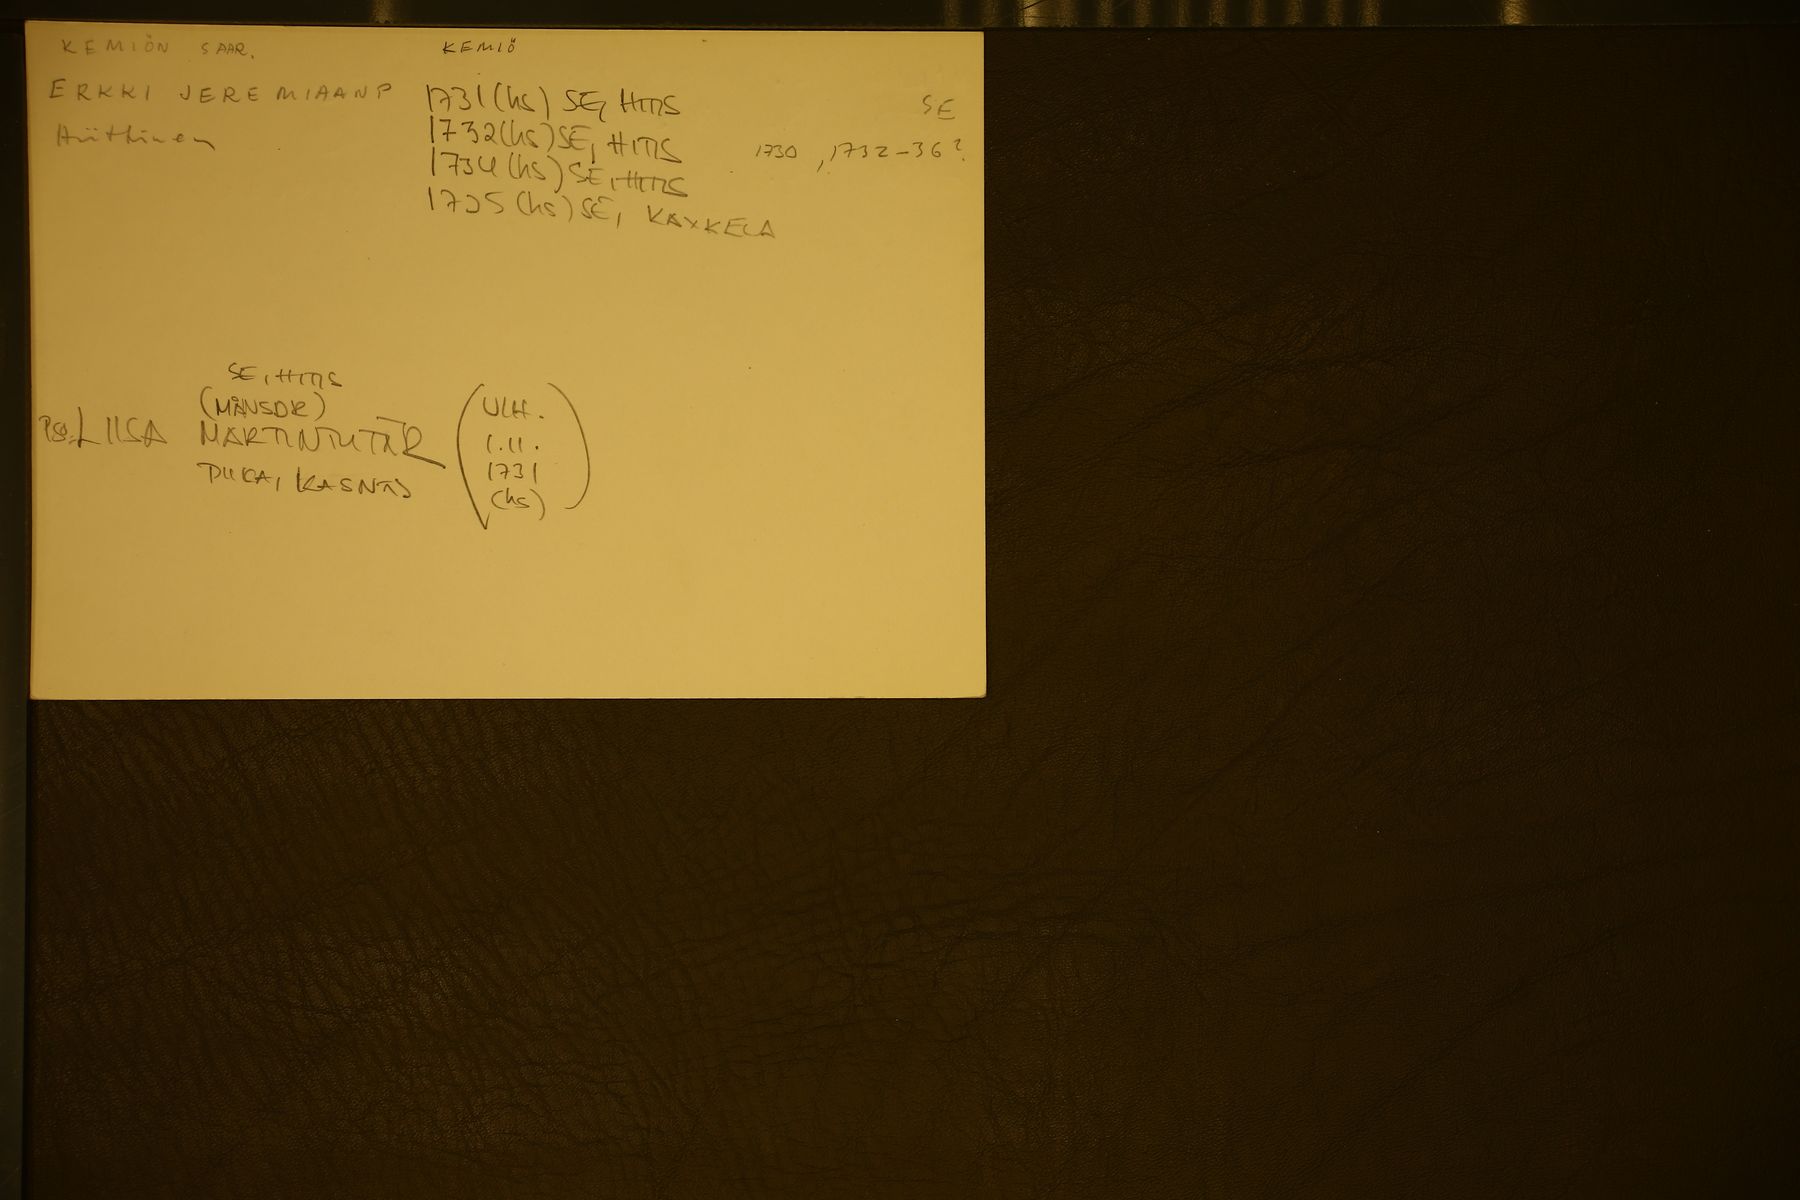 KEMIÖN SAAR. KEMIÖ
ERKKI JEREMIAANP 1731 (hs) SE, HITIS SE
Hiittinen 1732 (hs) SE, HITIS 1730, 1732-36?
1734 (hs) SE, HITIS
1735 (hs) SE, KAXKELA
SE, HITIS
(MÅNSDR)
LIISA MARTINTYTÄR
PIIKA, KASNÄS
(VIH.
1.11.
1731
(hs))